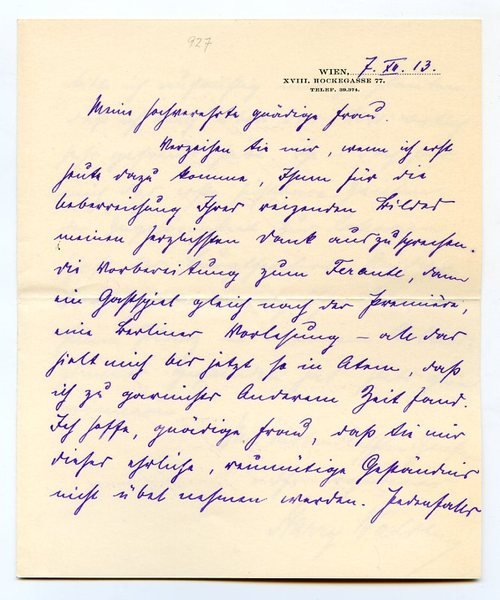 927
WIEN, 7. XII. 13.
XVIII. HOCKEGASSE 77.
TELEF. 39.374.
Meine hochverehrte gnädige Frau.
Verzeihen Sie mir, wenn ich erst
heute dazu komme, Ihnen für die
Ueberreichung Ihres reizenden Bildes
meinen herzlichsten Dank auszusprechen.
Die Vorbereitung zum Ferante, dann
ein Gastspiel gleich nach der Première,
eine Berliner Vorlesung – all das
hielt mich bis jetzt so in Atem, daß
ich zu garnichts Anderem Zeit fand.
Ich hoffe, gnädige Frau, daß Sie mir
dieses ehrliche, reumütige Geständnis
nicht übel nehmen werden. Jedenfalls